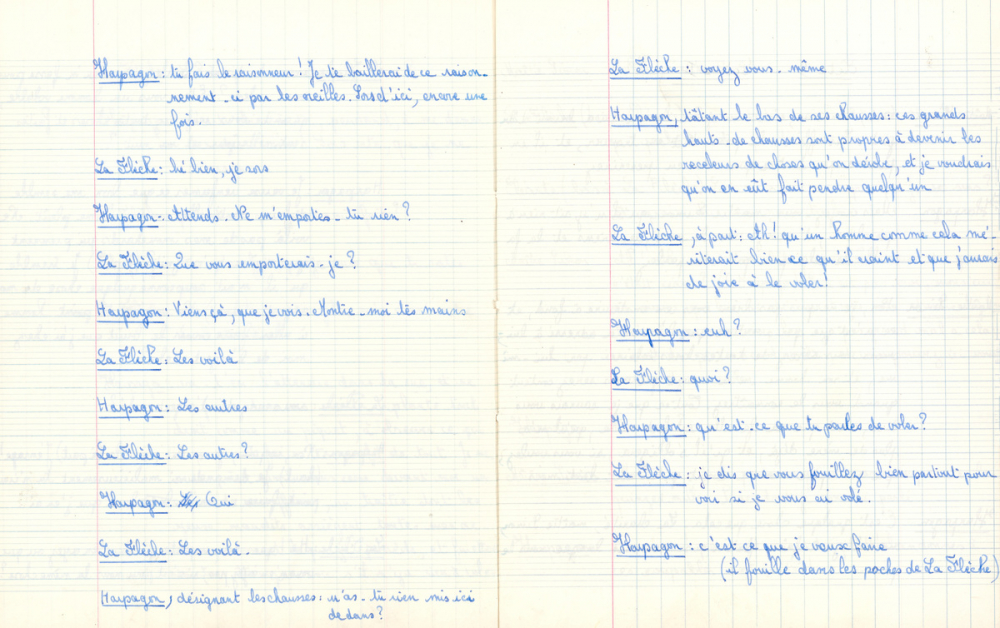 Harpagon : tu fais le raisonneur ! Je te baillerai de ce raison-
nement-ci par les oreilles. Sors d'ici, encore une
fois.
La Flèche : hé bien, je sors
Harpagon - Attends. Ne m'emportes-tu rien ?
La Flèche : Que vous emporterais-je ?
Harpagon : Viens çà, que je vois. Montre-moi tes mains
La Flèche : Les voilà
Harpagon : Les autres
La Flèche : Les autres ?
Harpagon : Oui
La Flèche : Les voilà.
Harpagon, désignant les chausses : n'as-tu rien mis ici
dedans ?
La Flèche : voyez vous-même
Harpagon, tâtant le bas de ses chausses : ces grands
hauts-de chausses sont propres à devenir les
receleurs de choses qu'on dérobe, et je voudrais
qu'on en eût fait pendre quelqu'un
La Flèche, à part : Ah ! qu'un homme comme cela mé-
riterait bien ce qu'il craint et que j'aurais
de joie à le voler !
Harpagon : euh ?
La Flèche : quoi ?
Harpagon : qu'est-ce que tu parles de voler ?
La Flèche : je dis que vous fouillez bien partout pour
voir si je vous ai volé.
Harpagon : c'est ce que je veux faire
(il fouille dans les poches de La Flèche)